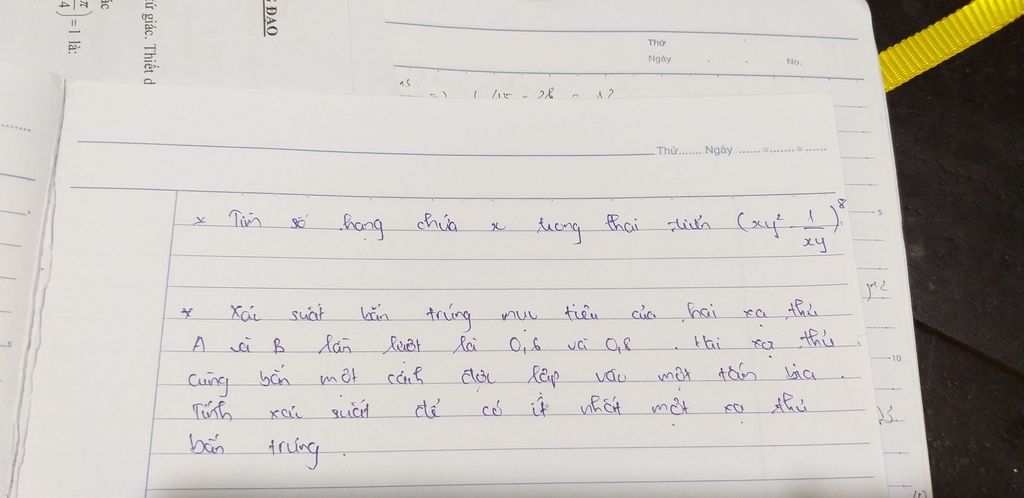 G ĐẠO
ác
π/4) = 1 là:
tứ giác. Thiết d
Thứ
Ngày . . No.
Thứ....... Ngày ......o.......o......
* Tìm số hạng chứa x trong khai triển (xy² - 1/xy)⁸.
* Xác suất bắn trúng mục tiêu của hai xạ thủ
A và B lần lượt là 0,6 và 0,8. Hai xạ thủ
cùng bắn một cách độc lập vào một tấm bia.
Tính xác suất để có ít nhất một xạ thủ
bắn trúng.
5
10